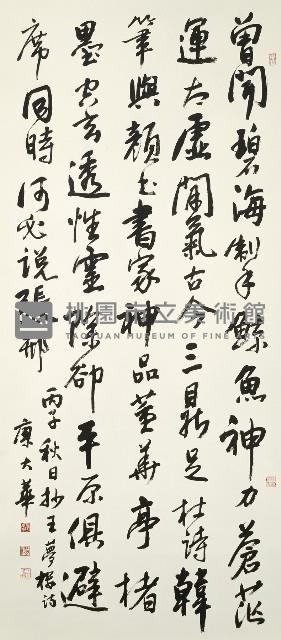 曾聞碧海掣鯨魚神力蒼茫
運太虛開氣古今三鼎足杜詩韓
筆與顏書書家神品董華亭楮
墨空玄透性靈除卻平原俱避
席同時何必說張邢
丙子秋日抄王夢樓詩
康大華
桃園市立美術館
TAOYUAN MUSEUM OF FINE ARTS